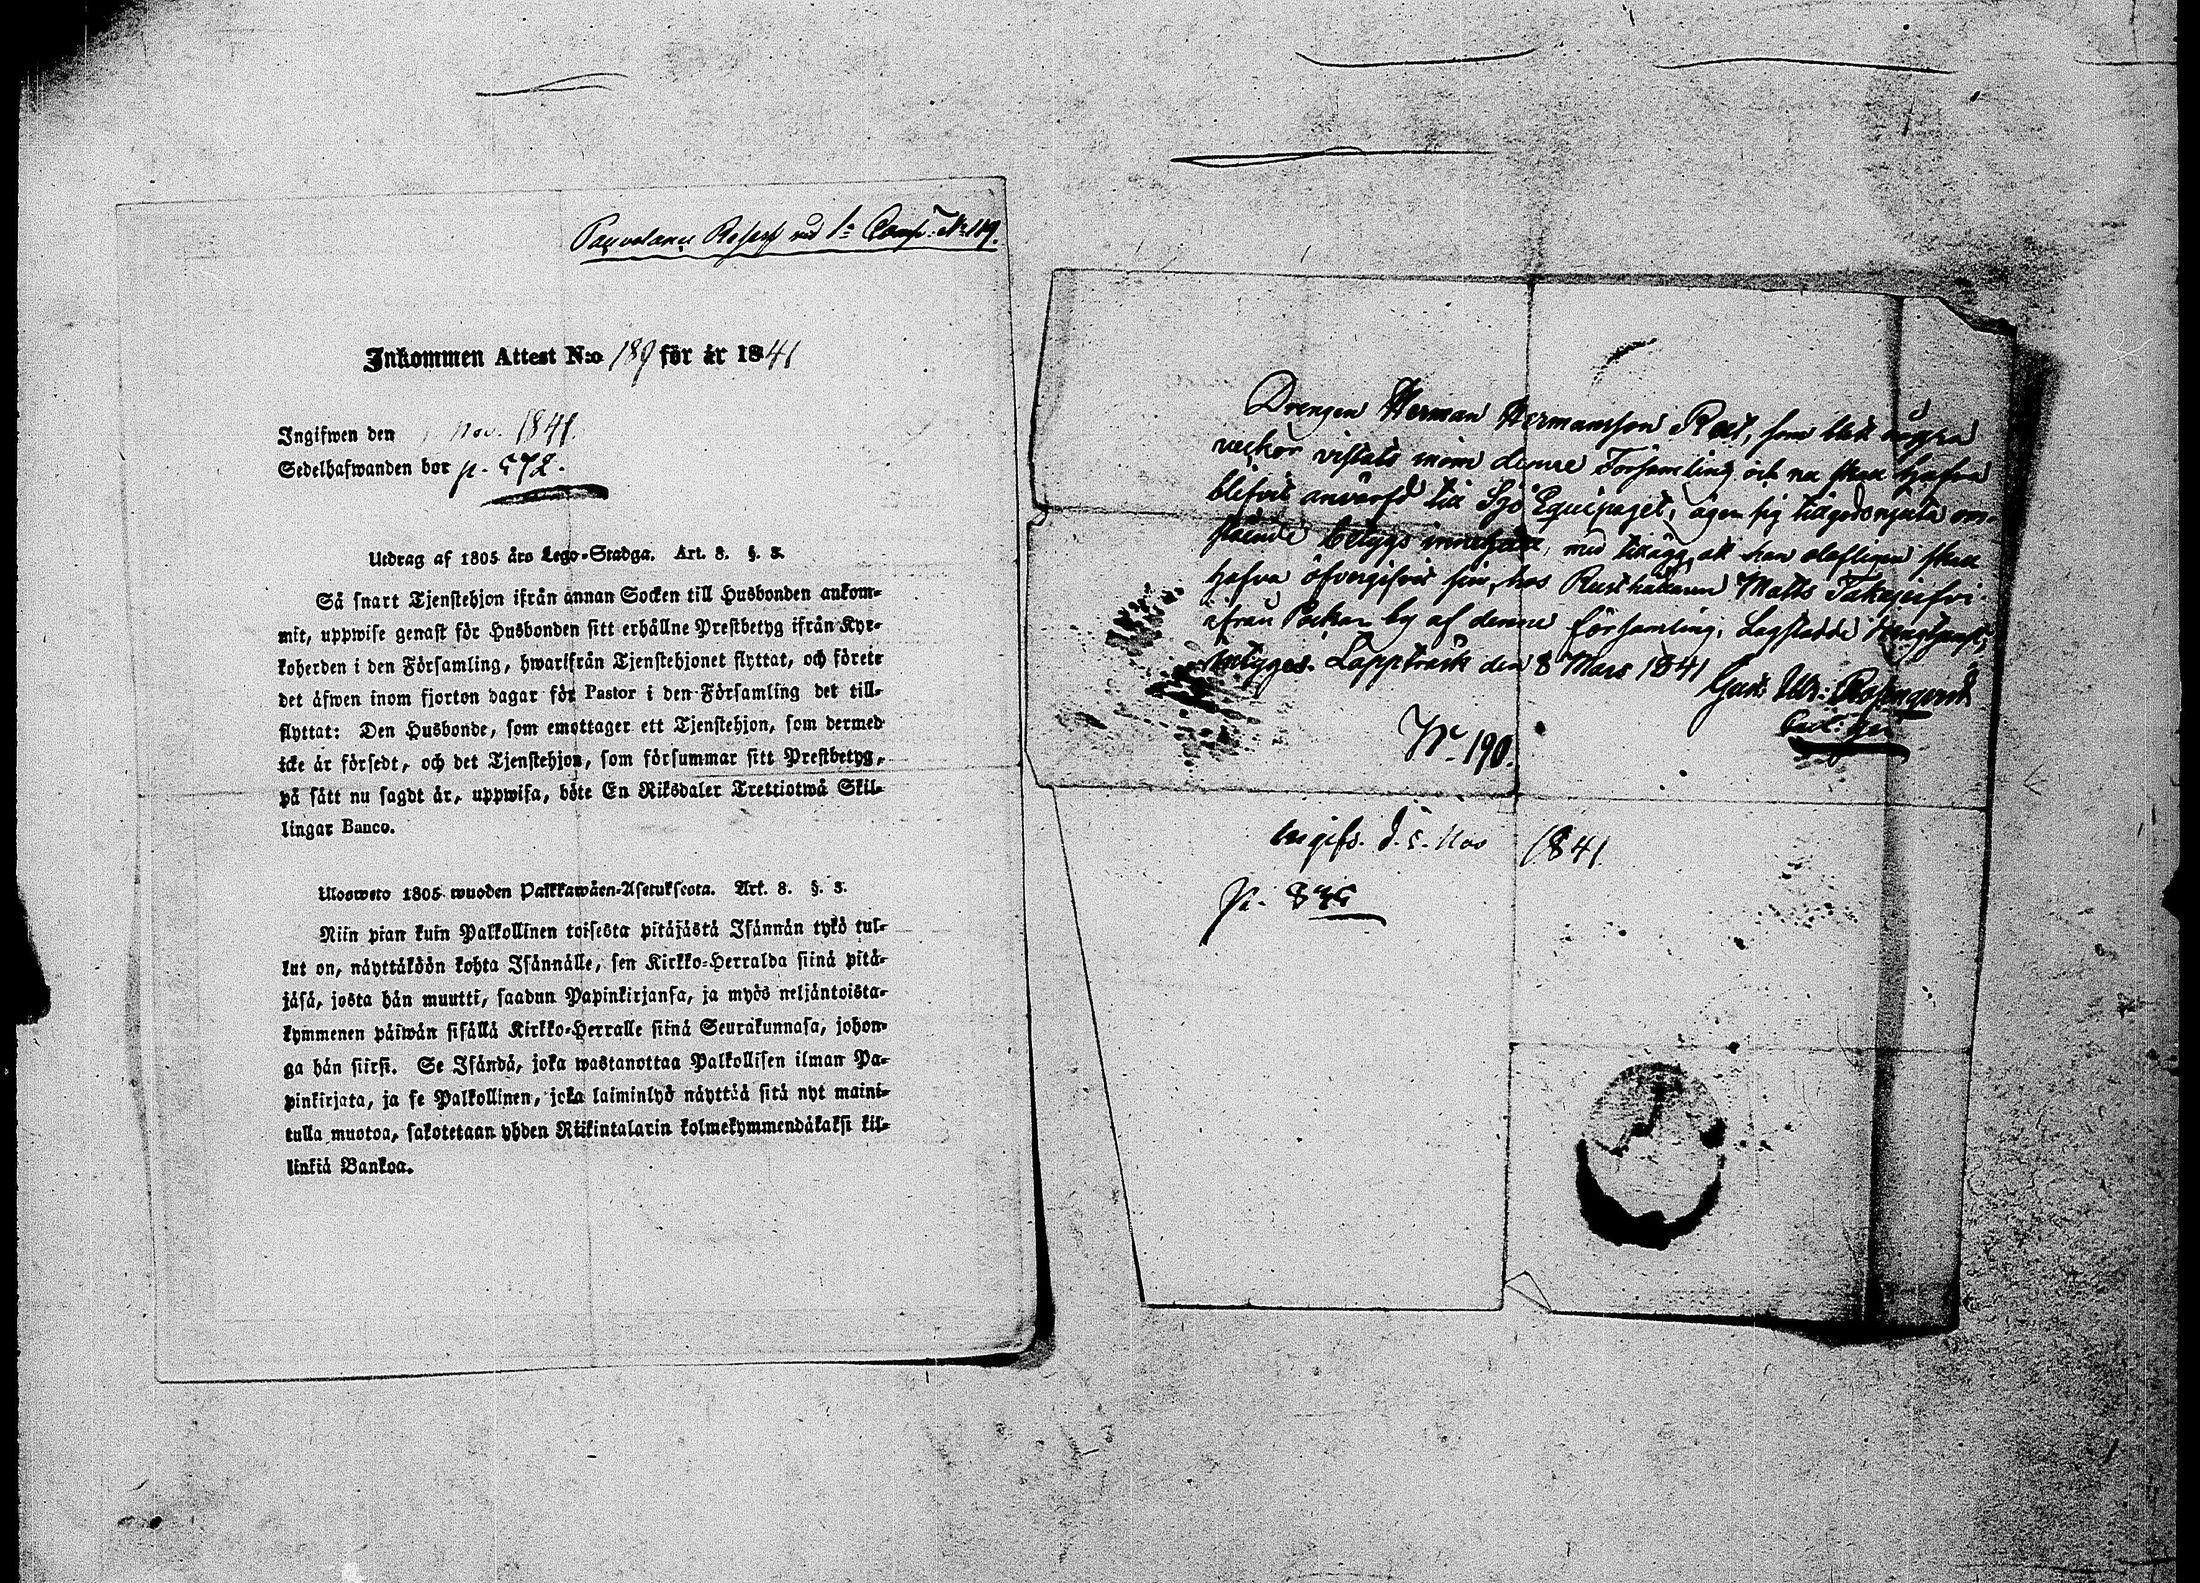 Inkommen Attest N:o 189 för år 1841
Ingifwen den Nov. 1841.
Sedelhafwanden bor p. 572.
Utdrag af 1805 års Lego-Stadga. Art. 8. §. 3.
Så snart Tjenstehjon ifrån annan Socken till Husbonden ankom-
mit, uppwise genast för Husbonden sitt erhållne Prestbetyg ifrån Kyr-
koherden i den Församling, hwarifrån Tjenstehjonet flyttat, och förete
det äfwen inom fjorton dagar för Pastor i den Församling det till-
flyttat: Den Husbonde, som emottager ett Tjenstehjon, som dermed
icke är försedt, och det Tjenstehjon, som försummar sitt Prestbetyg,
på sätt nu sagdt är, uppwisa, böte En Riksdaler Trettiotwå Skil-
lingar Banco.
Ulosweto 1805 wuoden Palkkawäen-Asetuksesta. Art. 8. §. 3.
Niin pian kuin Palkollinen toisesta pitäjästä Isännän tykö tul-
lut on, näyttäköön kohta Isännälle, sen Kirkko-Herralda siinä pitä-
jäsä, josta hän muutti, saadun Papinkirjansa, ja myös neljäntoista-
kymmenen päiwän sisällä Kirkko-Herralle siinä Seurakunnasa, johon-
ga hän siirsi. Se Isändä, joka wastanottaa Palkollisen ilman Pa-
pinkirjata, ja se Palkollinen, joka laiminlyö näyttää sitä nyt maini-
tulla muotoa, sakotetaan yhden Riikintalarin kolmekymmendäkaksi kil-
linkiä Bankoa.
Drengen Herman Hermansson Rest, som blott några
veckor vistats inom denne Församling och nu skall hafva
blifvit anvärfd till Sjö Equipaget, ägen sig tillgodonjuta om-
stående betygs innehåll, med tillägg, att han olofligen skall
hafva öfvergifvit sin, hos Rusthållaren Matts
ifrån by af denne församling, Lagstadde
betygas. Lappträsk den 8 Mars 1841
No 190.
Ingifs. d. 5. Nov 1841.
p. 845